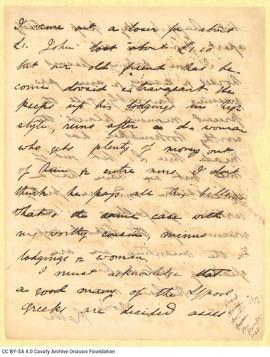 I came out a loser for about
£1. John lost about £1.10
but our old friend had be
comes devilish extravagant he
keeps up his lodgings in high
style, runs after a woman
who gets plenty of money out
of him & entre nous I don't
think he pays all his bills
That is the same case with
my worthy cousin, minus
lodgings & woman.
I must acknowledge that
a good many of the L'pool
Greeks are decided asses
CC BY-SA 4.0 Cavafy Archive Onassis Foundation